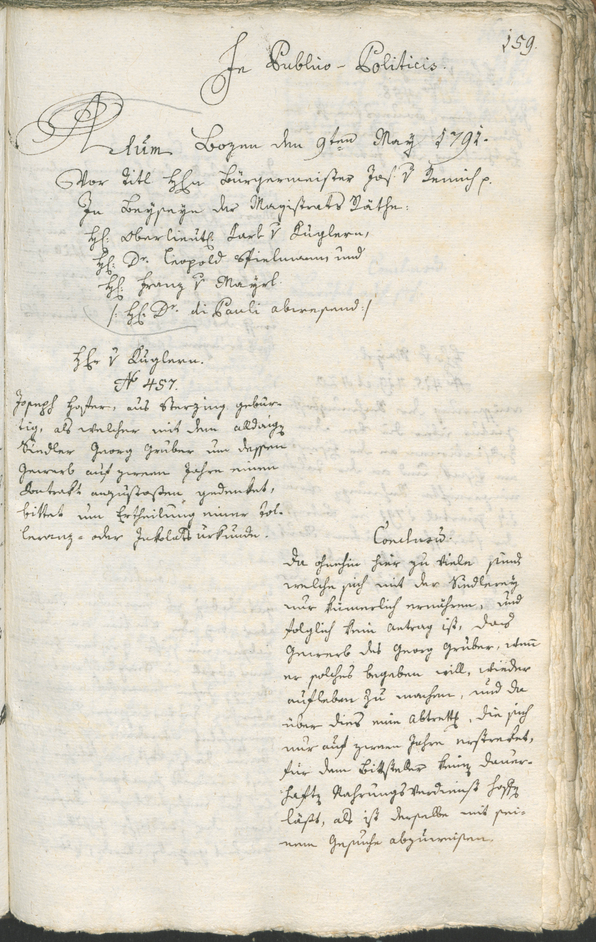 159.
In Publico-Politicis.
Actum Bozen den 9ten May 1791.
Vor Titl Hhn Bürgermeister Jos: v Remich p.
In Beyseyn der Magistrats Räthe:
Hh: Oberlieut: Karl v Kuglern,
Hh: Dr. Leopold Spielmann und
Hh: Franz v Mayrl.
/: Hh: Dr. di Pauli abwesend :/
Hhr v Kuglern.
N 457.
Joseph Hofer, aus Sterzing gebür-
tig, als welcher mit dem alldaig
Siedler Georg Gruber um dessen
Gewerb auf zween Jahre einen
Contrakt anzustossen gedenket,
bittet um Ertheilung einer Tol-
leranz- oder Inkolats urkunde.
Conclusum.
Da ohnehin hier zu viele sind
welche sich mit der Siedlerey
nur kümerlich ernähren, und
folglich kein Antrag ist, das
Gewerb des Georg Gruber, wenn
er solches begeben will, wieder
aufleben zu machen, und da
über dies eine Abtrettg, die sich
nur auf zween Jahre erstreket,
für dem Bittsteller keine dauer-
hafte Nahrungsverdienst hoffen
läßt, als ist derselbe mit sei-
nem Gesuche abzuweisen.